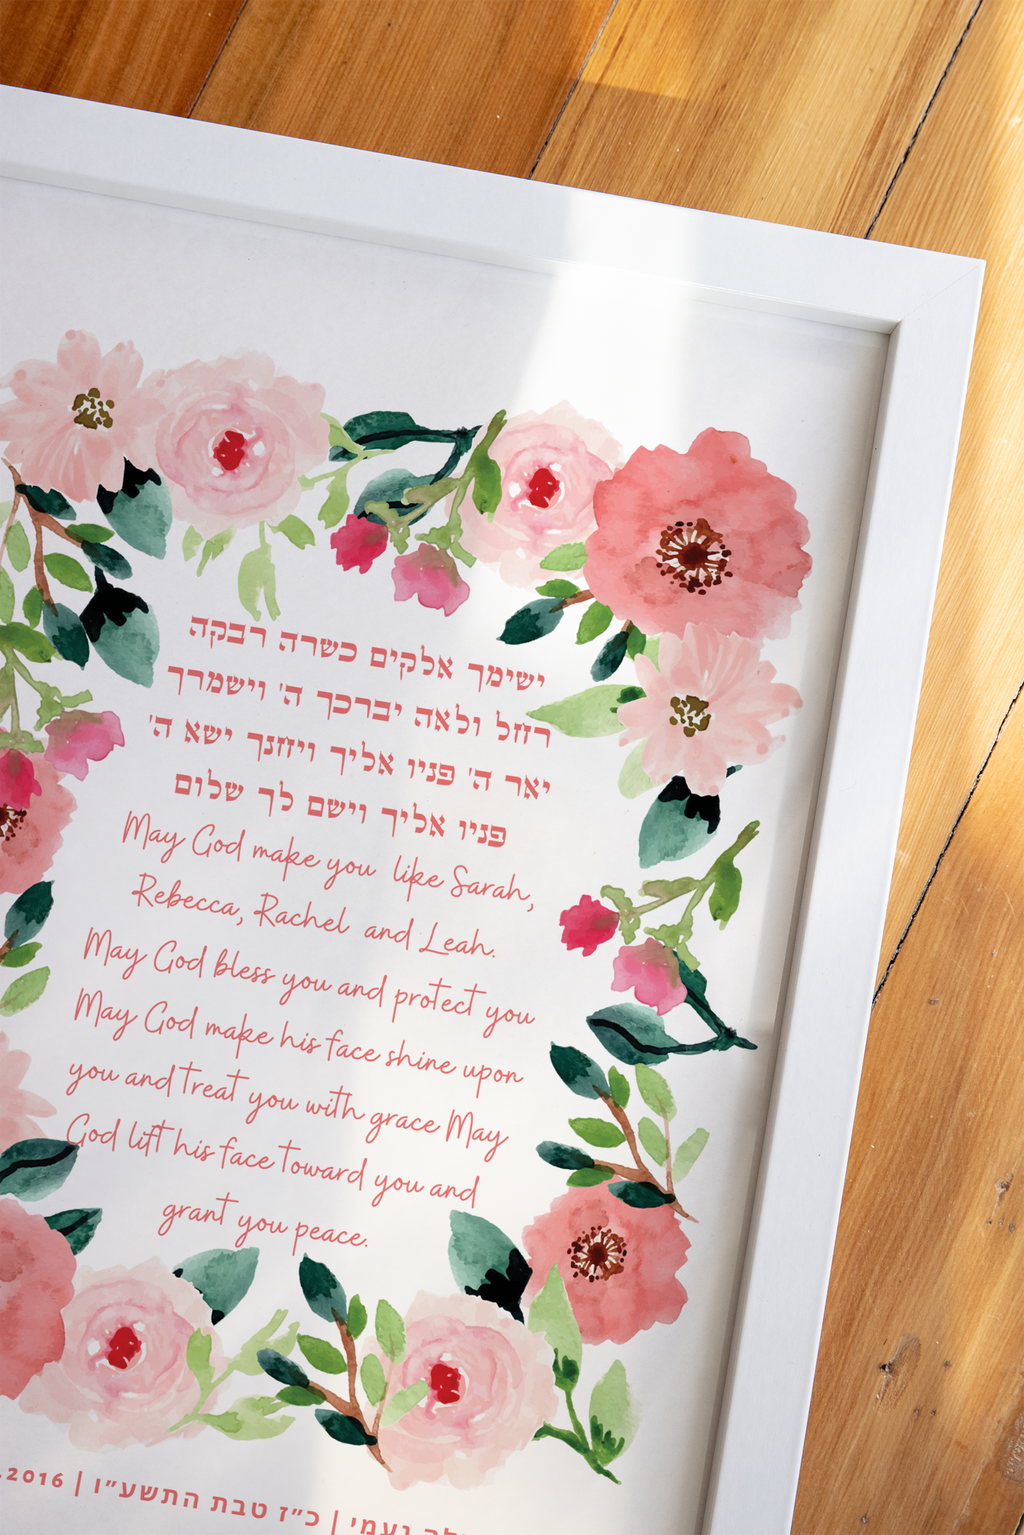 ישימך אלקים כשרה רבקה
רחל ולאה יברכך ה' וישמרך
יאר ה' פניו אליך ויחנך ישא ה'
פניו אליך וישם לך שלום
May God make you like Sarah,
Rebecca, Rachel and Leah.
May God bless you and protect you
May God make his face shine upon
you and treat you with grace May
God lift his face toward you and
grant you peace.
נעמי | כ״ז טבת התשע״ו | .2016